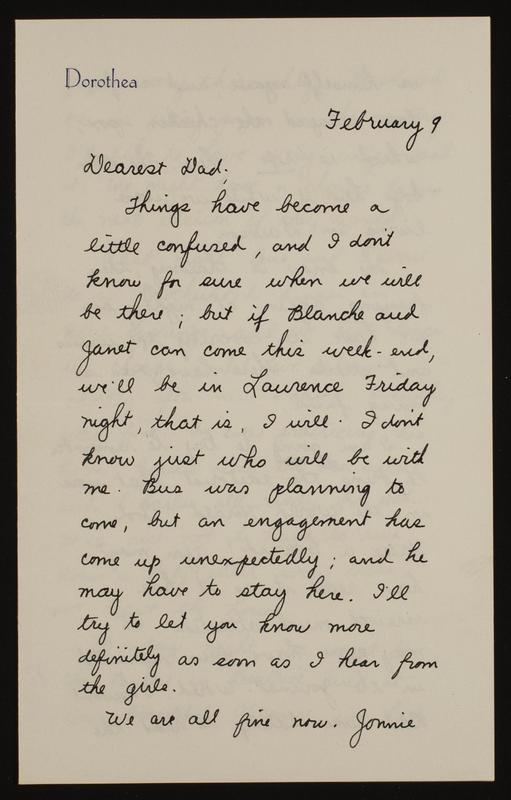 Dorothea
February 9
Dearest Dad;
Things have become a
little confused, and I don't
know for sure when we will
be there; but if Blanche and
Janet can come this week-end,
we'll be in Lawrence Friday
night, that is, I will. I don't
know just who will be with
me. Bus was planning to
come, but an engagement has
come up unexpectedly; and he
may have to stay here. I'll
try to let you know more
definitely as soon as I hear from
the girls.
We are all fine now. Jonnie